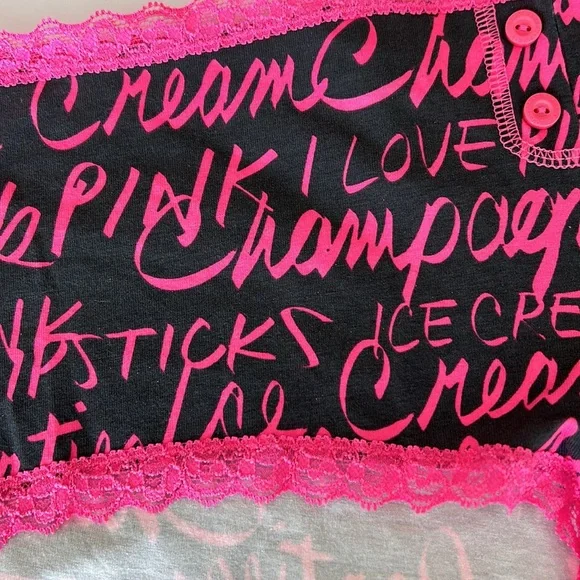 Cream Cham
PINK I LOVE
Champag
STICKS ICE CRE
Ice Crea